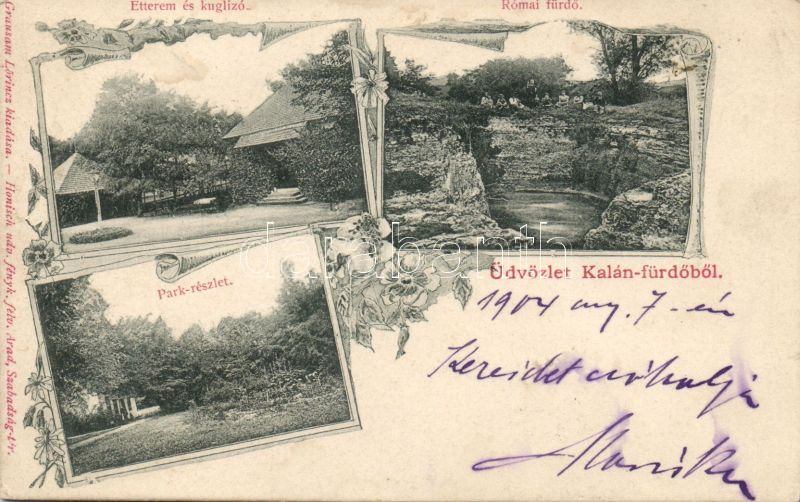 Étterem és kuglizó.
Római fürdő.
Park-részlet.
Üdvözlet Kalán-fürdőből.
1904 aug. 7-én
Kezeidet csókolja
Mariska
Grausam Lőrincz kiadása. — Honisch udv. fényk. felv. Arad, Szabadság-tér.
darabanth.com